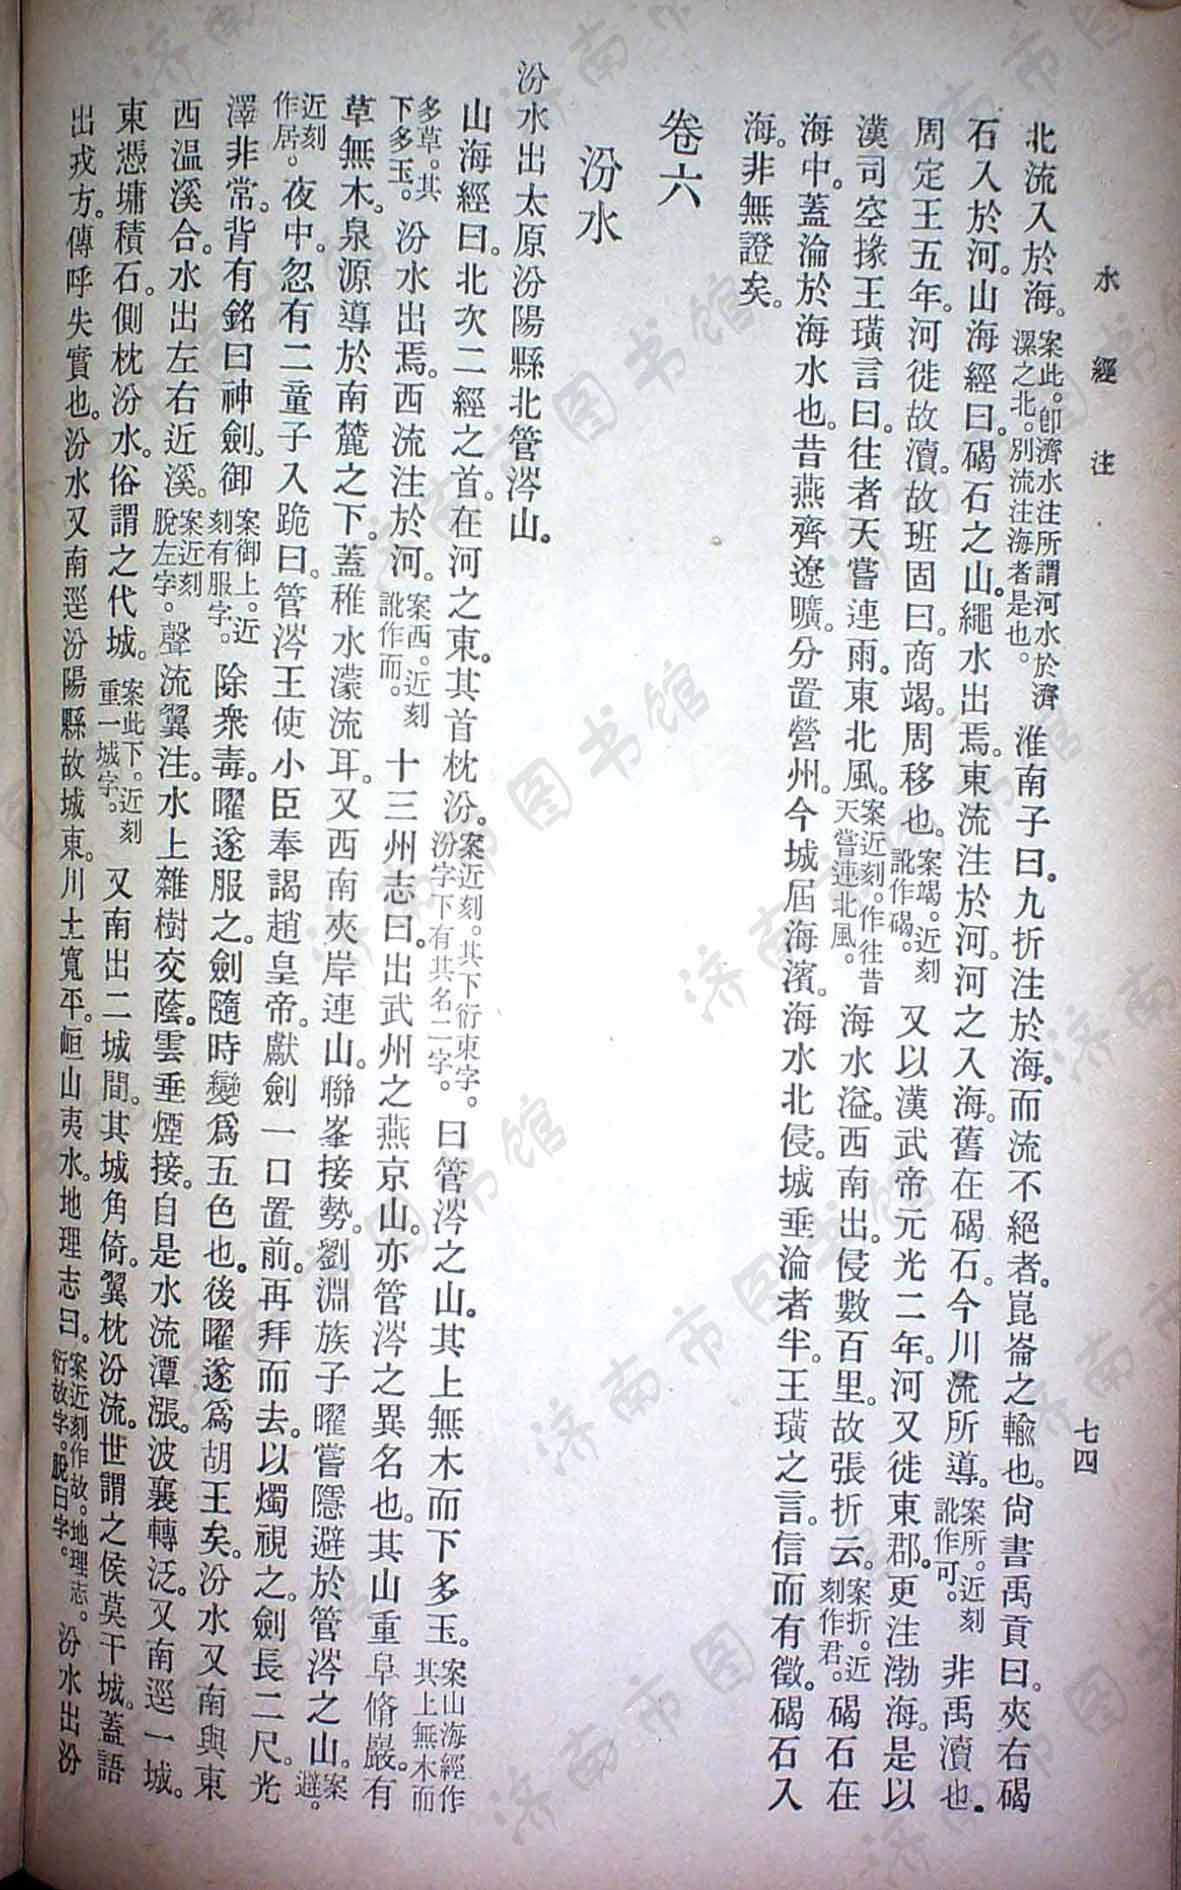 水經注
七四
北流入於海。案此。卽濟水注所謂河水於濟漯之北。別流注海者是也。淮南子曰。九折注於海。而流不絕者。崑崙之輸也。尙書禹貢曰。夾右碣
石入於河。山海經曰。碣石之山。繩水出焉。東流注於河。河之入海。舊在碣石。今川流所導。案所。近刻訛作可。非禹瀆也。
周定王五年。河徙故瀆。故班固曰。商竭。周移也。案竭。近刻訛作碣。又以漢武帝元光二年。河又徙東郡。更注渤海。是以
漢司空掾王璜言曰。往者天嘗連雨。東北風。案近刻。作往昔天嘗連北風。海水溢。西南出。侵數百里。故張折云。案折。近刻作君。碣石在
海中。蓋淪於海水也。昔燕齊遼曠。分置營州。今城屆海濱。海水北侵。城垂淪者半。王璜之言。信而有徵。碣石入
海。非無證矣。
卷六
汾水
汾水出太原汾陽縣北管涔山。
山海經曰。北次二經之首。在河之東。其首枕汾。案近刻。其下衍東字。汾字下有其名二字。曰管涔之山。其上無木而下多玉。案山海經作其上無木而
多草。其下多玉。汾水出焉。西流注於河。案西。近刻訛作而。十三州志曰。出武州之燕京山。亦管涔之異名也。其山重阜脩巖。有
草無木。泉源導於南麓之下。蓋稚水濛流耳。又西南夾岸連山。聯峯接勢。劉淵族子曜嘗隱避於管涔之山。案避。
近刻作居。夜中。忽有二童子入跪曰。管涔王使小臣奉謁趙皇帝。獻劍一口置前。再拜而去。以燭視之。劍長二尺。光
澤非常。背有銘曰神劍。御案御上。近刻有服字。除衆毒。曜遂服之。劍隨時變爲五色也。後曜遂爲胡王矣。汾水又南與東
西溫溪合。水出左右近溪。案近刻脫左字。聲流翼注。水上雜樹交蔭。雲垂煙接。自是水流潭漲。波襄轉泛。又南逕一城。
東憑墉積石。側枕汾水。俗謂之代城。案此下。近刻重一城字。又南出二城間。其城角倚。翼枕汾流。世謂之侯莫干城。蓋語
出戎方。傳呼失實也。汾水又南逕汾陽縣故城東。川土寬平。峘山夷水。地理志曰。案近刻作故。地理志。衍故字。脫曰字。汾水出汾